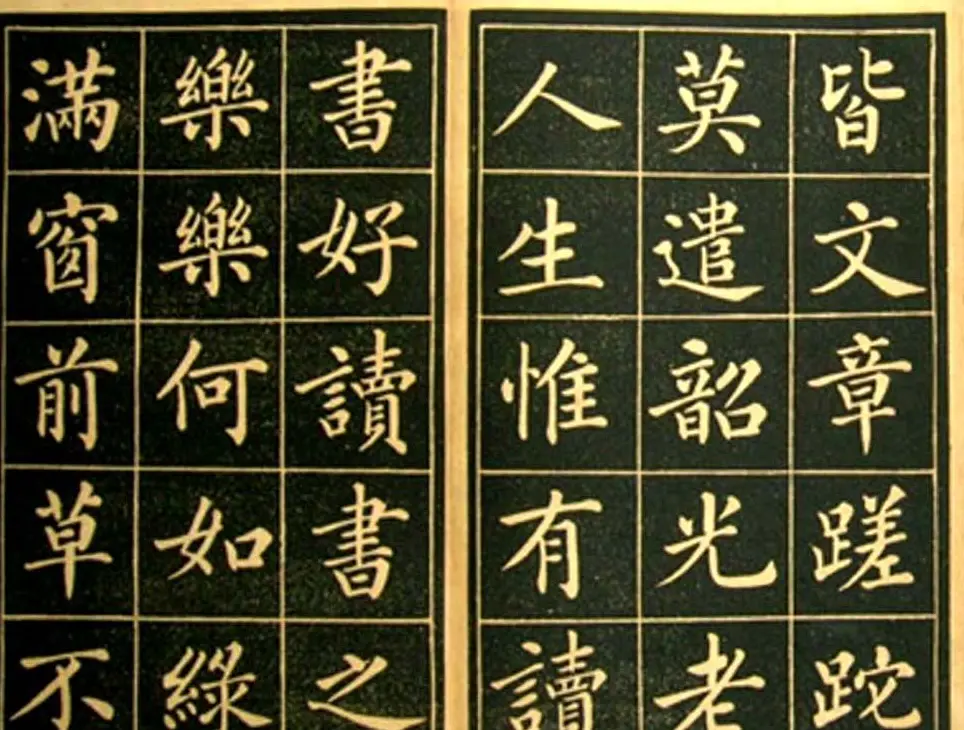 皆文章蹉跎
莫遣韶光老
人生惟有讀
書好讀書之
樂樂何如綠
滿窗前草不